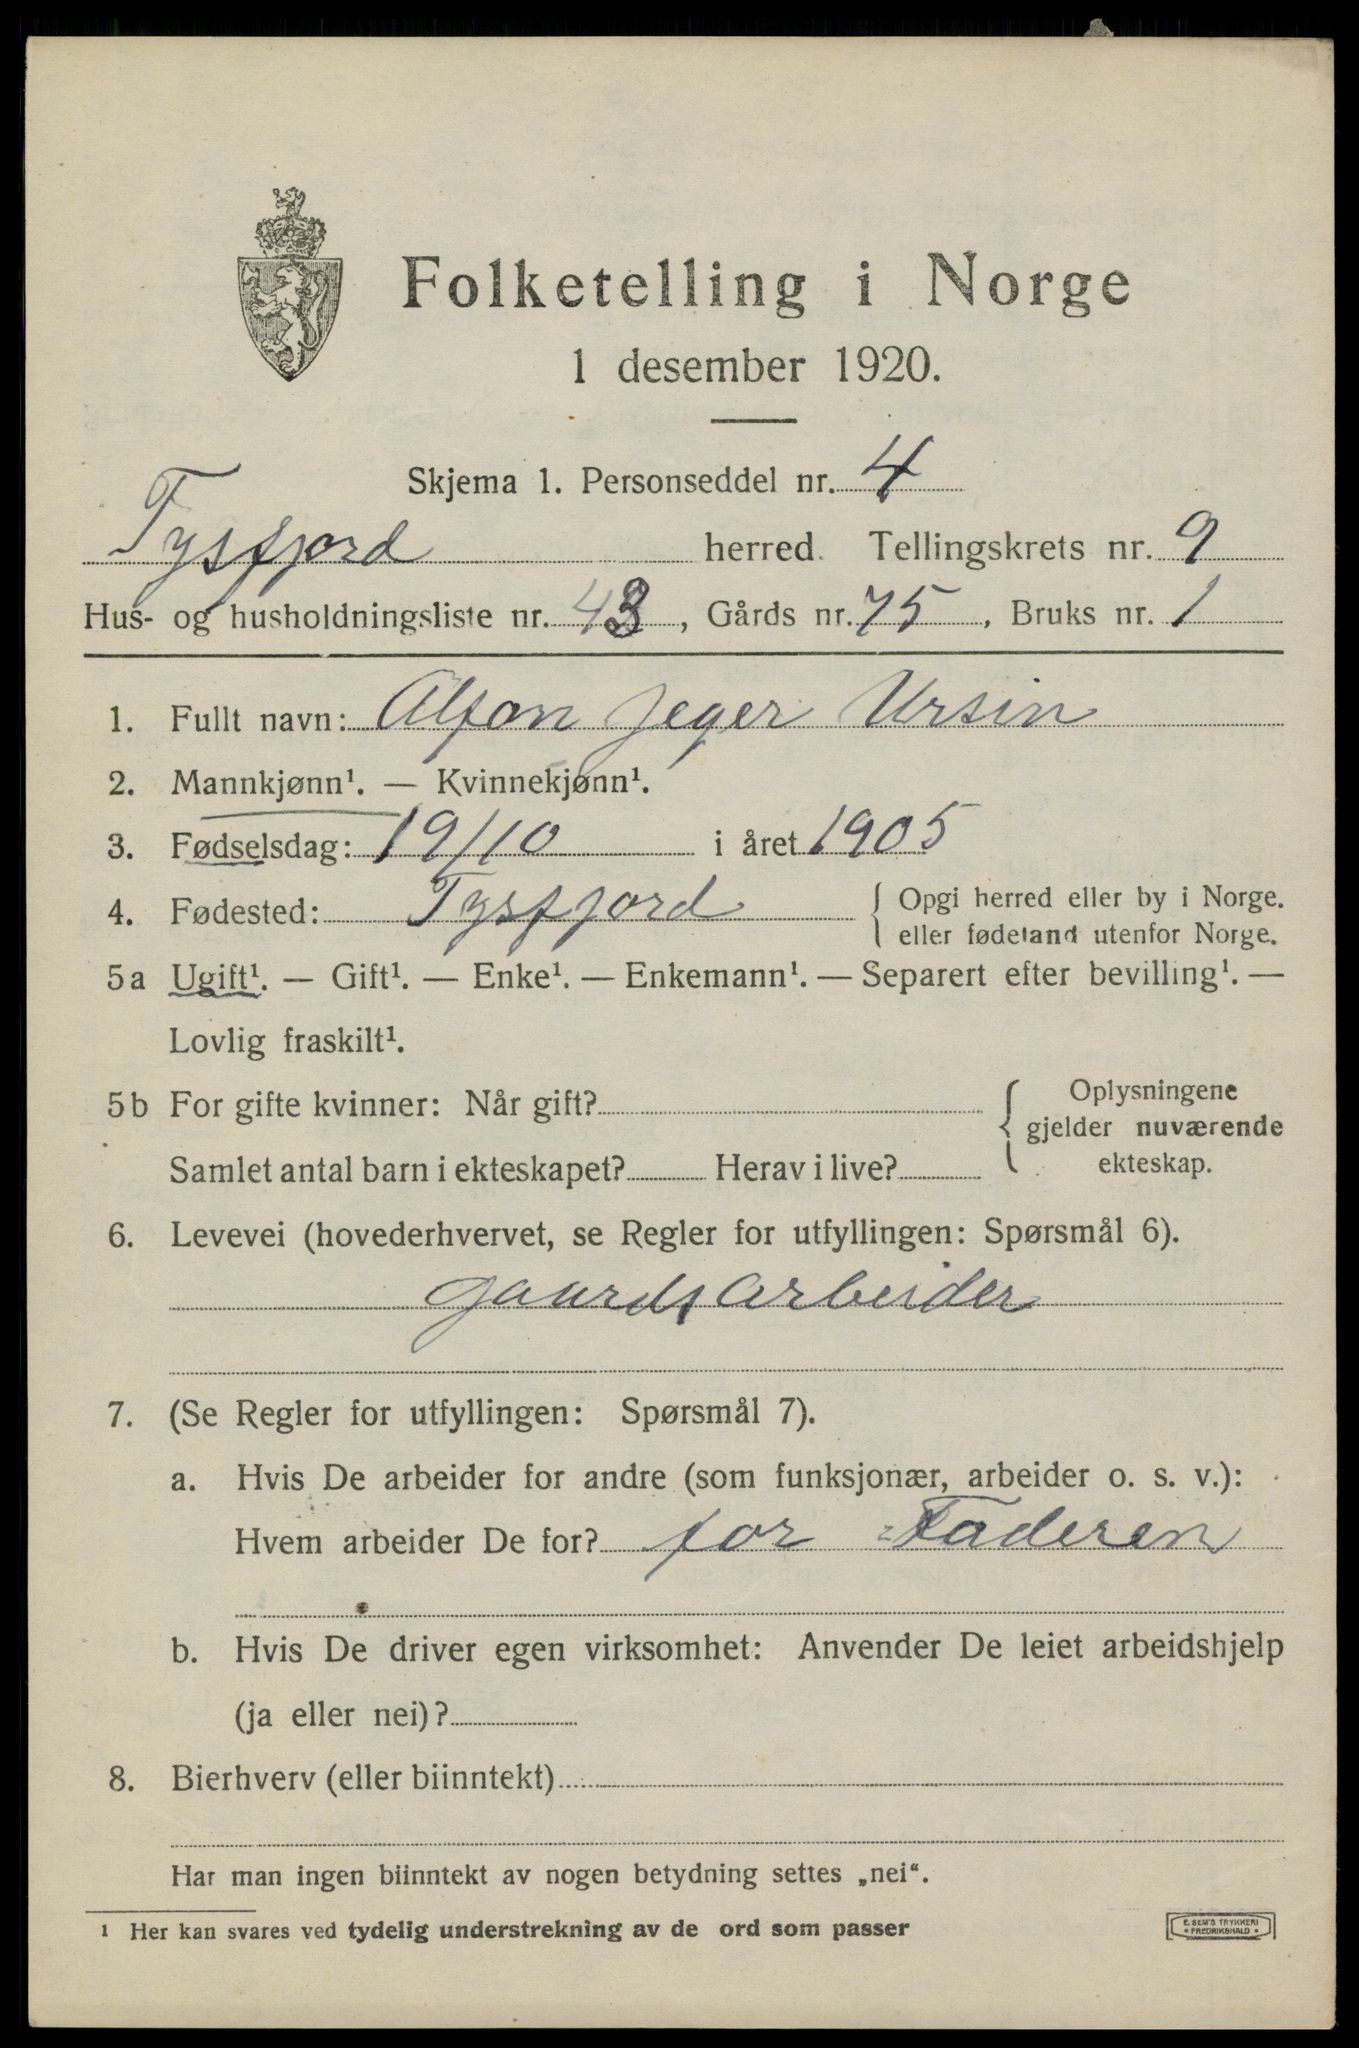 Folketelling i Norge
1 desember 1920.
Skjema 1. Personseddel nr. 4
Tysfjord herred. Tellingskrets nr. 9
Hus- og husholdningsliste nr. 43, Gårds nr. 75, Bruks nr. 1
1. Fullt navn: Alfon Jeger Ursin
2. Mannkjønn¹. — Kvinnekjønn¹.
3. Fødselsdag: 19/10 i året 1905
4. Fødested: Tysfjord { Opgi herred eller by i Norge.
eller fødeland utenfor Norge.
5a Ugift¹. — Gift¹. — Enke¹. — Enkemann¹. — Separert efter bevilling¹. —
Lovlig fraskilt¹.
5b For gifte kvinner: Når gift? { Oplysningene
gjelder nuværende
ekteskap.
Samlet antal barn i ekteskapet? Herav i live?
6. Levevei (hovederhvervet, se Regler for utfyllingen: Spørsmål 6).
gaardsarbeider
7. (Se Regler for utfyllingen: Spørsmål 7).
a. Hvis De arbeider for andre (som funksjonær, arbeider o. s. v.):
Hvem arbeider De for? for Faderen
b. Hvis De driver egen virksomhet: Anvender De leiet arbeidshjelp
(ja eller nei)?
8. Bierhverv (eller biinntekt)
Har man ingen biinntekt av nogen betydning settes „nei“.
1 Her kan svares ved tydelig understrekning av de ord som passer
E. SEM'S TRYKKERI
FREDRIKSHALD